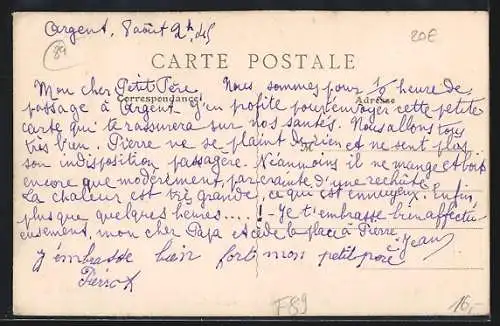 Argent, 8 août 2h.45
20E
84
CARTE POSTALE
Mon cher Petit Père, Nous sommes pour 1/2 heure de
Correspondance Adresse
passage à Argent. J'en profite pour envoyer cette petite
carte qui te rassurera sur nos santés. Nous allons tous
très bien. Pierre ne se plaint de rien et ne sent plus
son indisposition passagère. Néanmoins il ne mange et boit
encore que modérément, par crainte d'une rechute.
La chaleur est très grande, ce qui est ennuyeux. Enfin,
plus que quelques heures.....! - Je t'embrasse bien affectu-
eusement, mon cher Papa et cède la place à Pierre.
Jean
j'embrasse bien fort mon petit père
Pierrot
F89
16,-